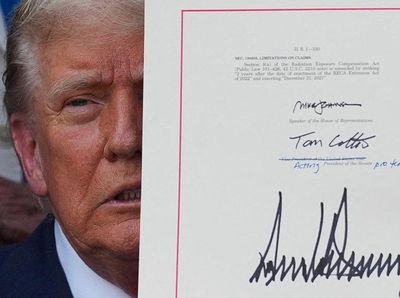 H. R. 1—330
SEC. 100205. LIMITATIONS ON CLAIMS.
Section 8(a) of the Radiation Exposure Compensation Act
(Public Law 101–426; 42 U.S.C. 2210 note) is amended by striking
"2 years after the date of enactment of the RECA Extension Act
of 2022" and inserting "December 31, 2027".
Speaker of the House of Representatives
Tom Cotton
Vice President of the United States and
Acting President of the Senate pro te